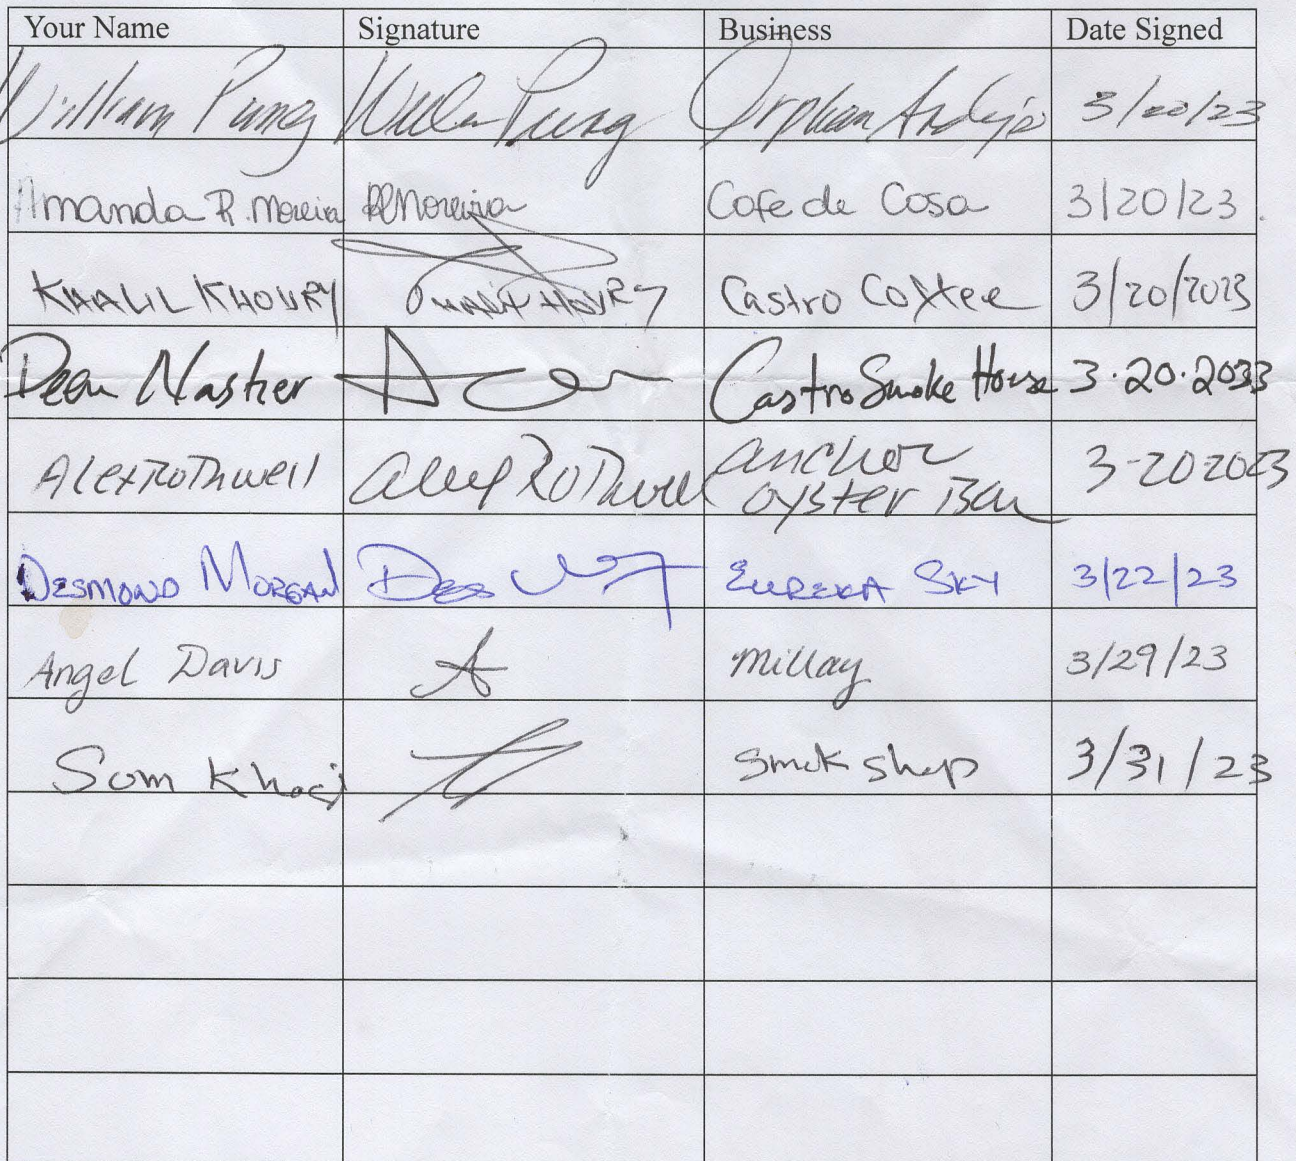 Your Name Signature Business Date Signed
William Pung William Pung Orphan Andys 3/20/23
Amanda R. Moreira ARMoreira Cafe de Casa 3/20/23
KHALIL KHOURY KHALIL KHOURY Castro Coffee 3/20/2023
Dean Nasher Castro Smoke House 3.20.2023
Alex Rothwell Alex Rothwell anchor
oyster Bar 3-20 2023
DESMOND MORGAN Des EUREKA SKY 3/22/23
Angel Davis A Millay 3/29/23
Sam Smok shop 3/31/23